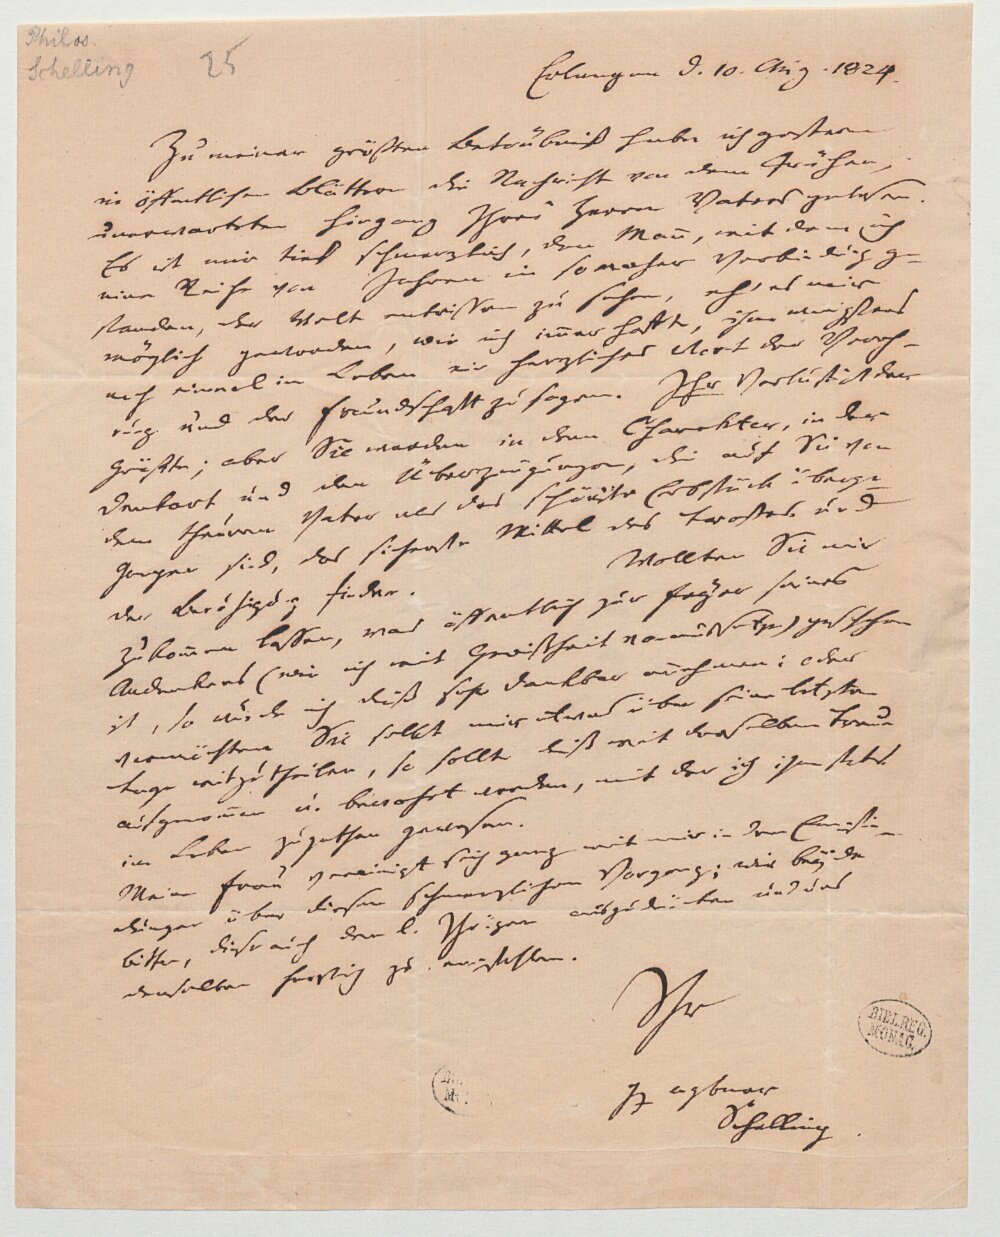 Philos.
Schelling
25
Erlangen d. 10. Aug. 1824.
Zu meiner größten Betrübniß habe ich gestern
in öffentlichen Blättern die Nachricht von dem frühen,
unerwarteten Hingang Ihres Herrn Vaters gelesen.
Es ist mir tief schmerzlich, den Mann, mit dem ich
eine Reihe von Jahren in so naher Verbindung ge-
standen, der Welt entrissen zu sehen, eh' es mir
möglich geworden, wie ich immer hoffte, ihm wenigstens
noch einmal im Leben ein herzliches Wort der Vereh-
rung und der Freundschaft zu sagen. Ihr Verlust ist der
größte; aber Sie werden in dem Charakter, in der
Denkart und den Überzeugungen, die auf Sie von
dem theuren Vater als das schönste Erbstück überge-
gangen sind, das sicherste Mittel des Trostes und
der Beruhigung finden. Wollten Sie mir
zukommen lassen, was öffentlich zur Feyer seines
Andenkens (wie ich mit Gewißheit voraussetze) geschehen
ist, so würde ich dieß sehr dankbar annehmen; oder
vermöchten Sie selbst mir etwas über seine letzten
Tage mitzutheilen, so sollte dieß mit derselben Treue
aufgenommen u. bewahrt werden, mit der ich ihm stets
im Leben zugethan gewesen.
Meine Frau vereinigt sich ganz mit mir in den Empfin-
dungen über diesen schmerzlichen Vorgang; wir beyde
bitten, dieß auch den l. Ihrigen auszudrücken und uns
denselben herzlich zu empfehlen.
Ihr
Schelling
BIBL. REG.
MONAC.